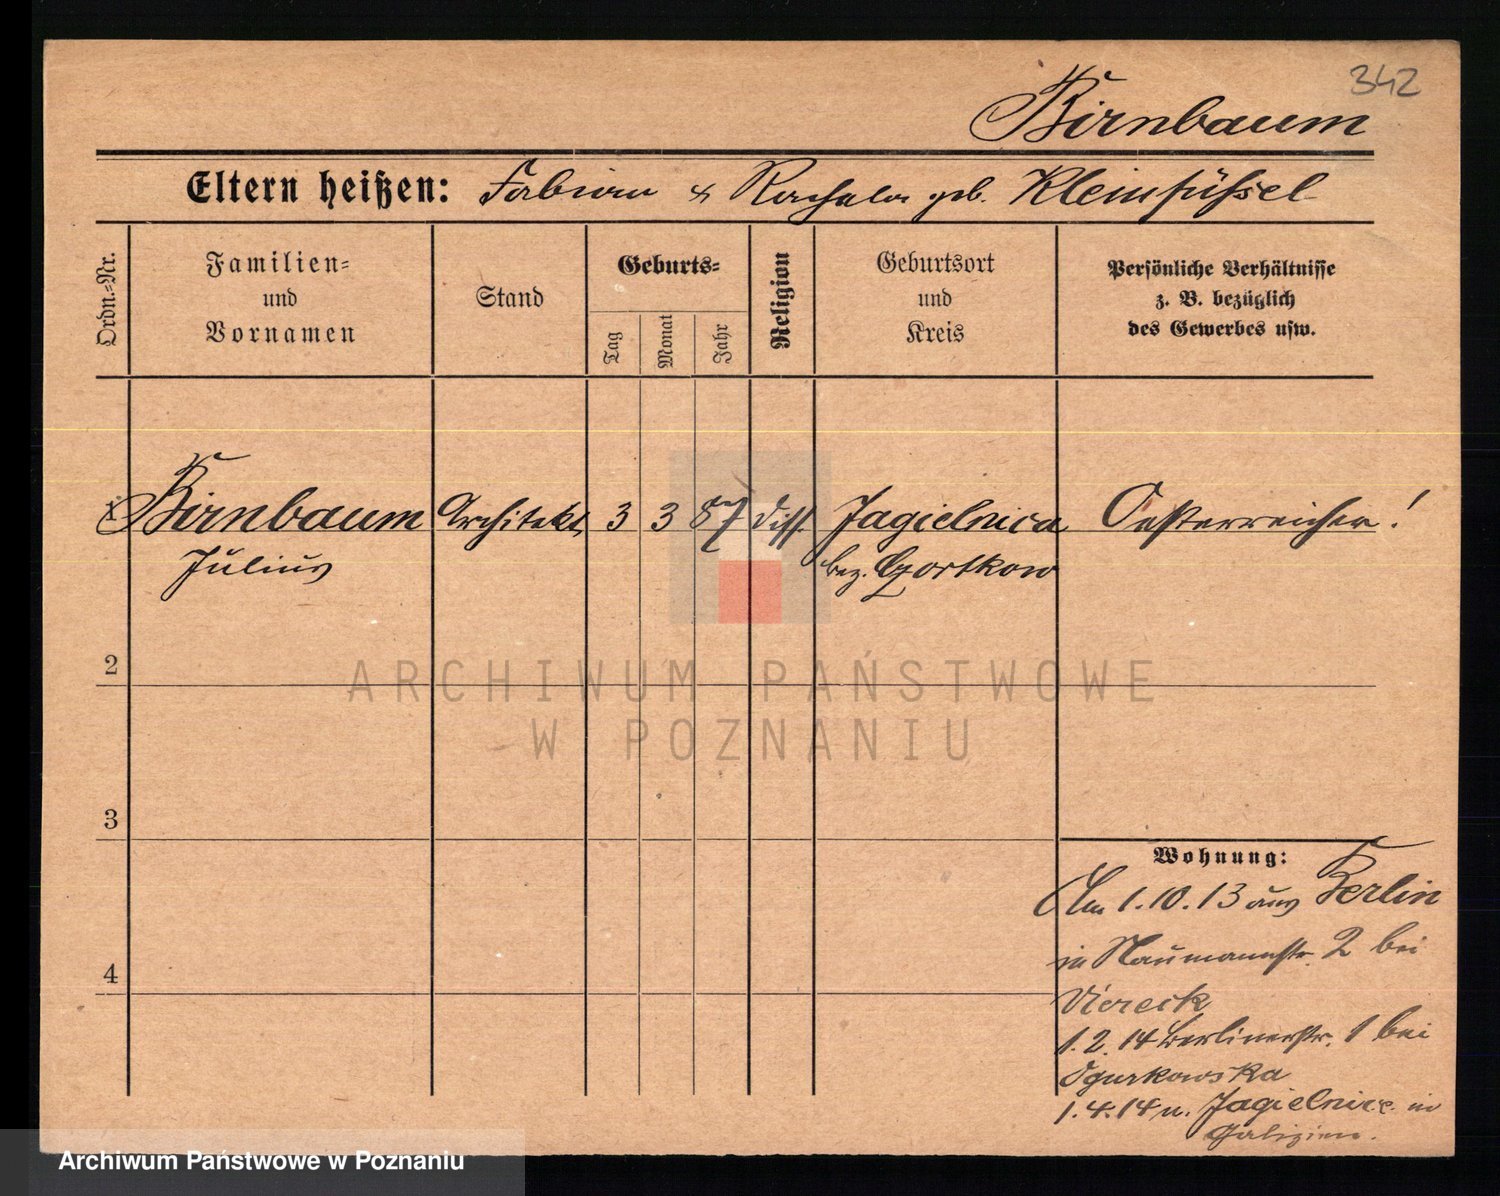 342
Birnbaum
Eltern heißen: Fabian & Rachela geb. Kleinfüssel
Ordn.-Nr.
Familien-
und
Vornamen
Stand
Geburts-
Tag
Monat
Jahr
Religion
Geburtsort
und
Kreis
Persönliche Verhältnisse
z. B. bezüglich
des Gewerbes usw.
1 Birnbaum Architekt 3 3 87 diss. Jagielnica Oesterreicher!
Julius bez. Czortkow
2
3
4
Wohnung:
Am 1.10.13 aus Berlin
in Naumannstr. 2 bei
Viereck
1.2.14 Berlinerstr. 1 bei
Ogurkowska
1.4.14 n. Jagielnica in
Galizien.
ARCHIWUM PAŃSTWOWE
W POZNANIU
Archiwum Państwowe w Poznaniu